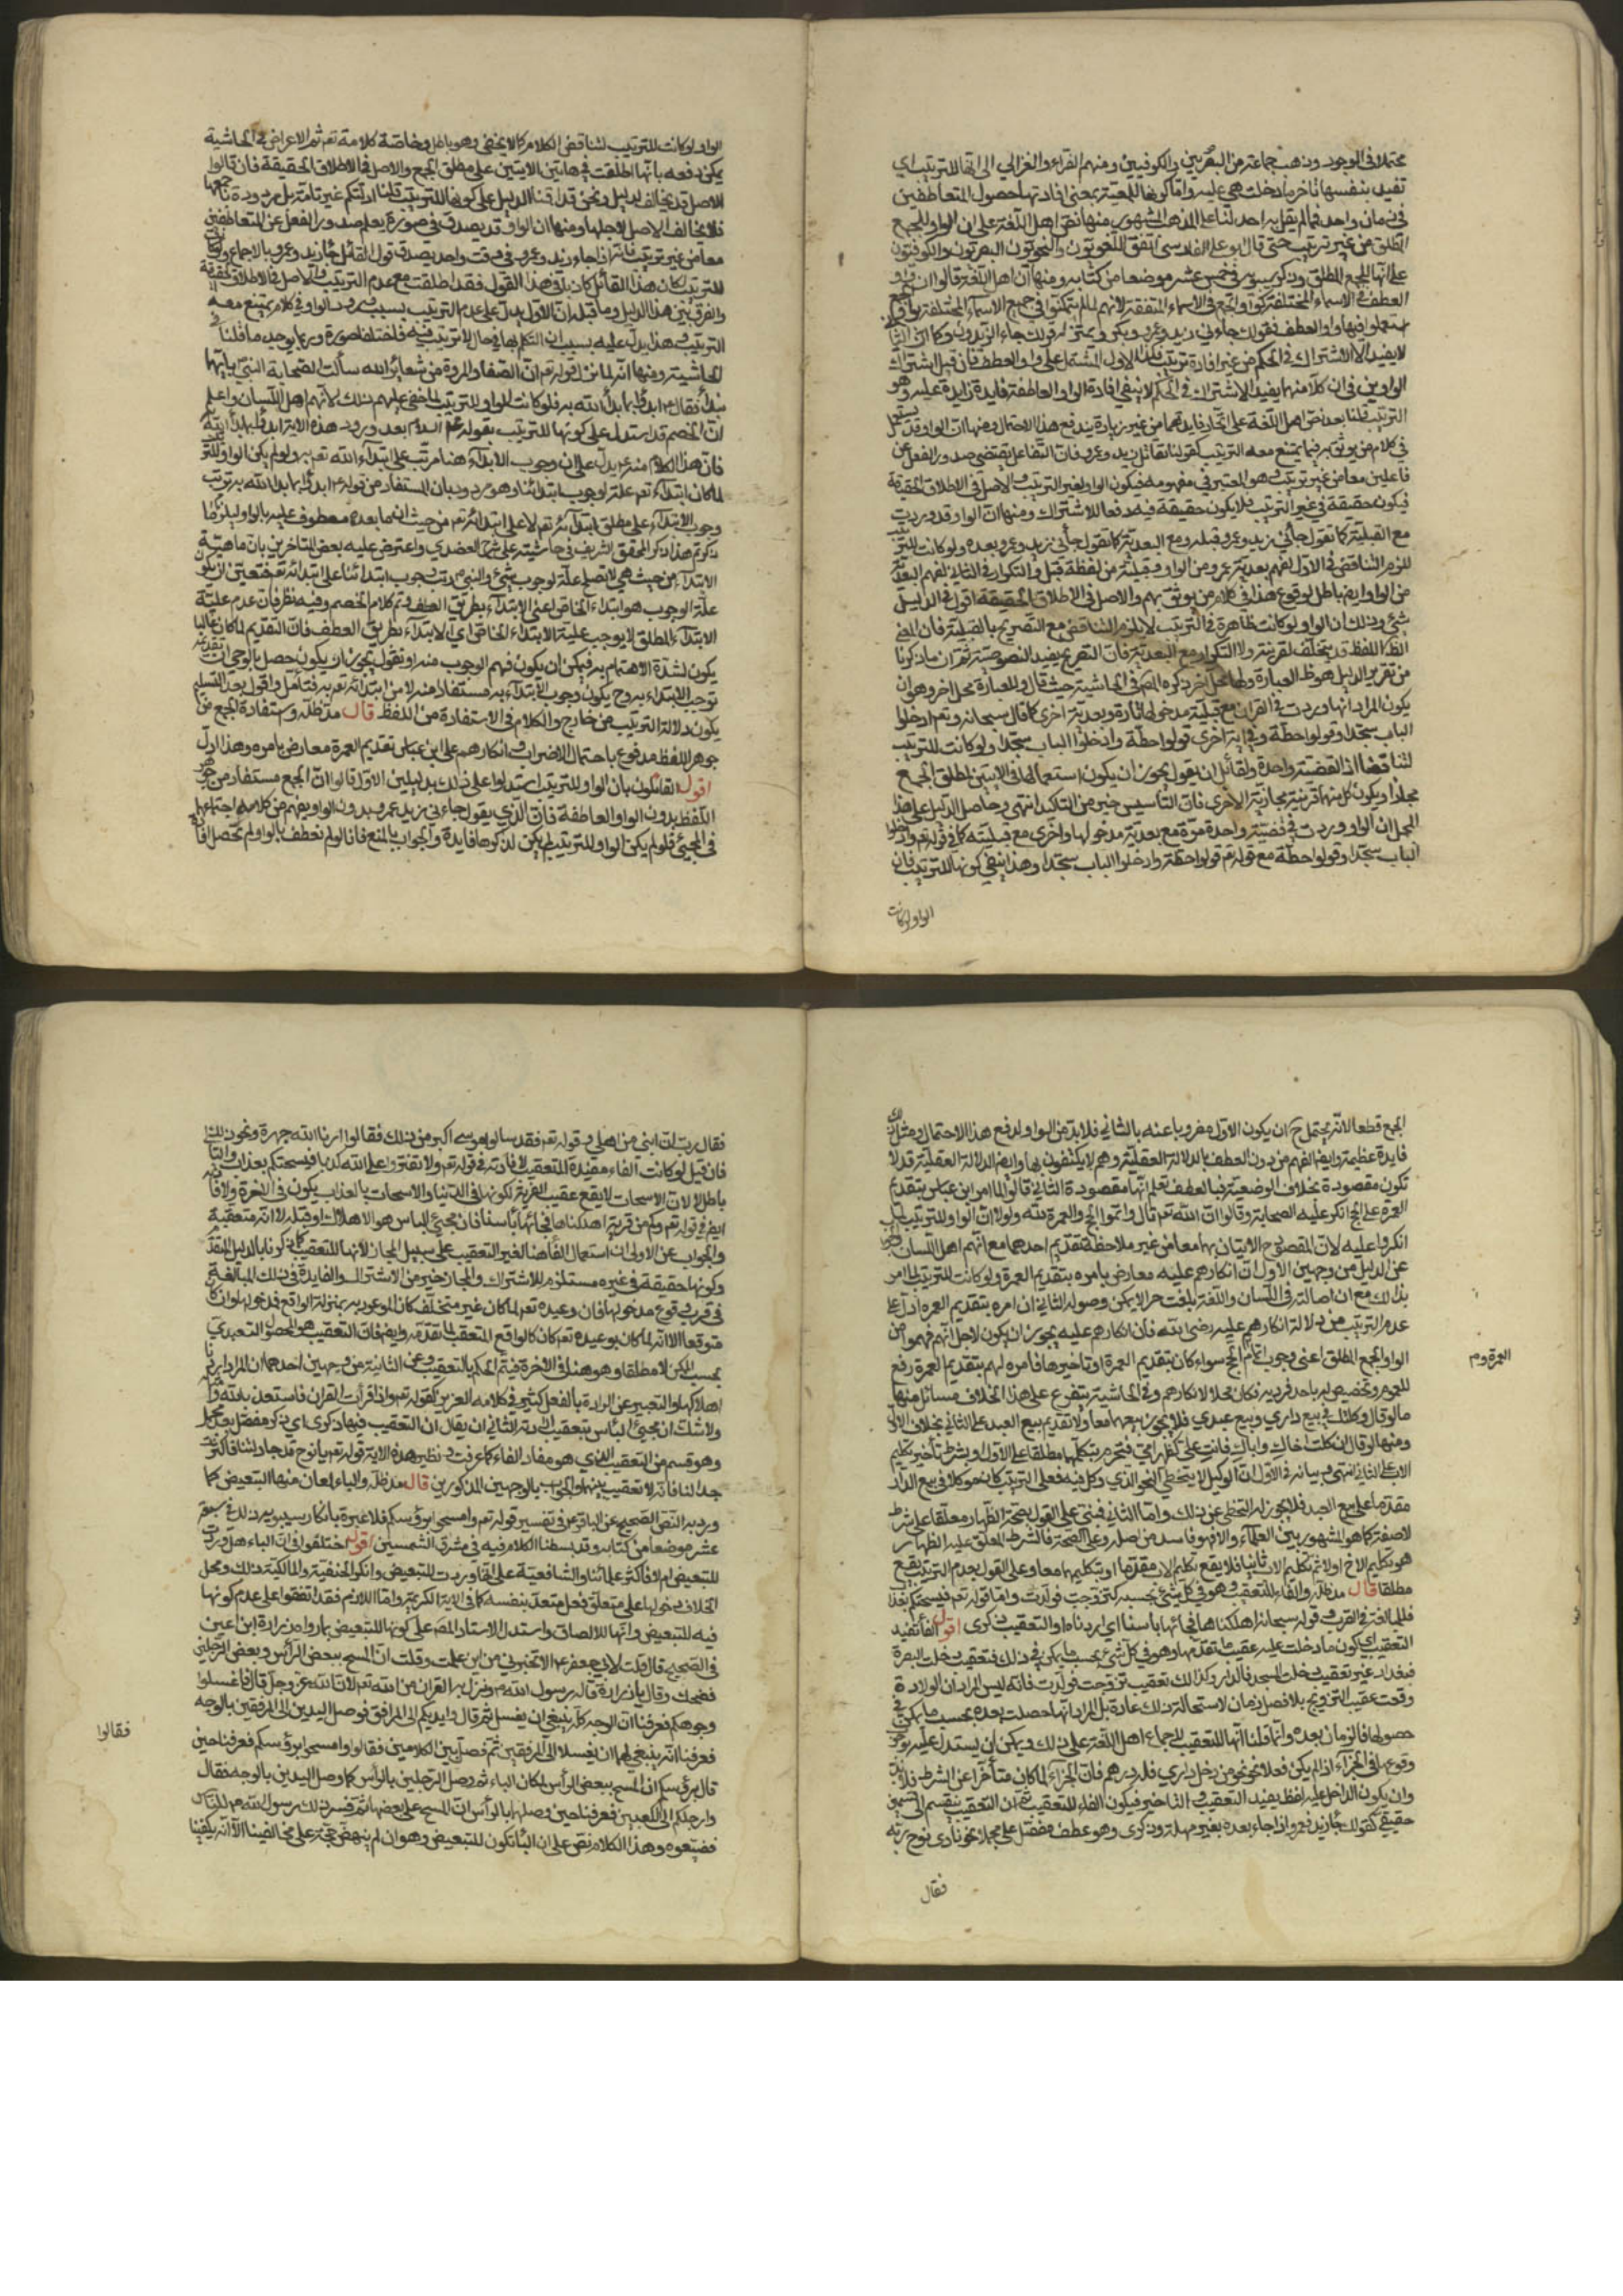 محتملا في الوجود وذهب جماعة من البصريين والكوفيين ومنهم الفراء والغزالي الى انها للترتيب اي
تفيد بنفسها تاخر ما دخلت هي عليه واما كونها للمعية بمعنى افادتها حصول المتعاطفين
في زمان واحد فما لم يقل به احد لنا على المذهب المشهور منها نص اهل اللغة على ان الواو للجمع
المطلق من غير ترتيب حتى قال ابو علي الفارسي اتفق اللغويون والنحويون البصريون والكوفيون
على انها للجمع المطلق وذكر سيبويه في خمس عشر موضعا من كتابه ومنها ان اهل اللغة قالوا ان واو
العطف في الاسماء المختلفة كواو الجمع في الاسماء المتفقة لانهم لما لم يتمكنوا في جميع الاسماء المختلفة بواو الجمع
استعملوا فيها واو العطف فقولك جاءني زيد وعمرو وبكر بمنزلة قولك جاء الزيدون وكما ان الثاني
لا يفيد الا الاشتراك في الحكم من غير افادة ترتيب فكذا الاول المشتمل على واو العطف فان قيل اشتراك
الواوين في ان كلا منهما يفيد الاشتراك في الحكم لا ينفي افادة الواو العاطفة فايدة زايدة عليه وهو
الترتيب قلنا بعد نص اهل اللغة على اتحاد فايدتهما من غير زيادة يندفع هذا الاحتمال ومنها ان الواو قد يستعمل
في كلام من يوثق به فيما يمتنع معه الترتيب كقولنا تقاتل زيد وعمرو فان التفاعل يقتضي صدور الفعل من
فاعلين معا من غير ترتيب وهو المعتبر في مفهومه فيكون الواو لغير الترتيب والاصل في الاطلاق الحقيقة
فيكون حقيقة في غير الترتيب فلا يكون حقيقة فيه دفعا للاشتراك ومنها ان الواو قد وردت
مع القبلية كما تقول جاءني زيد وعمرو قبله ومع البعدية كما تقول جاءني زيد وعمرو بعده ولو كانت للترتيب
للزم التناقض في الاول لفهم بعدية عمرو من الواو وقبليته من لفظة قبل والتكرار في الثاني لفهم البعدية
من الواو ايضا باطل لوقوع هذا في كلام من يوثق بهم والاصل في الاطلاق الحقيقة اقول في الدليل
شيء وذلك ان الواو لو كانت ظاهرة في الترتيب لا يلزم التناقض مع التصريح بالقبلية فان المعنى
الظاهر للفظ قد يتخلف لقرينة ولا التكرار مع البعدية فان التصريح يفيد النصوصية ثم ان ما ذكرنا
من تقرير الدليل هو ظاهر العبارة ولها محمل اخر ذكره المص في الحاشية حيث قال وللعبارة محمل اخر وهو ان
يكون المراد انها وردت في القران مع قبلية مدخولها تارة وبعديته اخرى كما قال سبحانه وتعم ادخلوا
الباب سجدا وقولوا حطة وفي اية اخرى قولوا حطة وادخلوا الباب سجدا ولو كانت للترتيب
لتناقضا اذ القضية واحدة ولقائل ان يقول يجوز ان يكون استعمالها في الايتين لمطلق الجمع
مجازا ويكون كل منهما قرينة مجازية الاخرى فان التاسيس خير من التاكيد انتهى وحاصل الدليل على هذا
المحمل ان الواو وردت في قضية واحدة مرة مع بعدية مدخولها واخرى مع قبليته كما في قوله تعم وادخلوا
الباب سجدا وقولوا حطة مع قوله تم قولوا حطة وادخلوا الباب سجدا وهذا ينفي كونها للترتيب فان
الواو لو كانت
الواو لو كانت للترتيب لتناقض الكلام كما لا يخفى وهو باطل وخاصة كلامه تعم ثم الاعراض في الحاشية
يمكن دفعه بانها اطلقت في هاتين الايتين على مطلق الجمع والاصل في الاطلاق الحقيقة فان قالوا
الاصل قد يخالف لدليل ونحن قد اقمنا الدليل على كونها للترتيب قلنا ادلتكم غير تامة بل مردودة باجمعها
فلا يخالف الاصل لاجلها ومنها ان الواو قد يصدق في صورة يعلم صدور الفعل عن المتعاطفين
معا من غير ترتيب فانه اذا جاء زيد وعمرو في وقت واحد يصدق قول القائل جاء زيد وعمرو بالاجماع ولو كانت
للترتيب لكان هذا القائل كاذبا في هذا القول فقد اطلقت مع عدم الترتيب والاصل في الاطلاق الحقيقة
والفرق بين هذا الدليل وما قبله ان الاول يدل على عدم الترتيب بسبب ورود الواو في كلام يمتنع معه
الترتيب وهذا يدل عليه بسبب ان التكلم بها في حال لا ترتيب فيه فاختلفا صورة وربما يوجد ما قلنا في
الحاشية ومنها انه لما نزل قوله تعم ان الصفا والمروة من شعائر الله سالت الصحابة النبي بايهما
نبدأ فقال ابدؤا بما بدأ الله به فلو كانت الواو للترتيب لما خفي عليهم ذلك لانهم اهل اللسان واعلم
ان الخصم قد استدل على كونها للترتيب بقوله عليه السلام بعد ورود هذه الاية ابدؤا بما بدأ الله به
فان هذا الكلام منه ع يدل على ان وجوب الابتداء هنا مرتب على ابتداء الله تعم به ولو لم يكن الواو للترتيب
لما كان ابتداءه تعم علة لوجوب ابتدائنا وهو مردود بان المستفاد من قوله ابدؤا بما بدا الله به ترتب
وجوب الابتداء على مطلق ابتدائه تعم لا على ابتدائه تعم من حيث ان ما بعده معطوف عليه بالواو ليلزم ما
ذكرتم هذا ذكر المحقق الشريف في حاشيته على شرح العضدي واعترض عليه بعض المتاخرين بان ماهية
الابتداء من حيث هي لا تصلح علة لوجوب شيء والنبي رتب وجوب ابتدائنا على ابتدائه تعم فتعين ان يكون
علة الوجوب هو ابتداء الخاص اعني الابتداء بطريق العطف وتم كلام الخصم وفيه نظر فان عدم علية
الابتداء المطلق لا يوجب علية الابتداء الخاص اي الابتداء بطريق العطف فان التقديم لما كان غالبا
يكون لشدة الاهتمام به فيمكن ان يكون فهم الوجوب منه او نقول يجوز ان يكون حصل بالوحي ان تقديمه
توجب الابتداء به وح يكون وجوب الابتداء به مستفاد منه لا من ابتدائه تعم به فتأمل واقول بعد التسليم
يكون دلالة الترتيب من خارج والكلام في الاستفادة من اللفظ قال مد ظله واستفادة الجمع من
جوهر اللفظ مدفوع باحتمال الاضراب وانكارهم على ابن عباس تقديم العمرة معارض بامره وهذا اول
اقول القائلون بان الواو للترتيب استدلوا على ذلك بدليلين الاول قالوا ان الجمع مستفاد من جوهر
اللفظ بدون الواو العاطفة فان الذي يقول جاءني زيد عمرو بدون الواو يفهم من كلامه اجتماعهما
في المجيء فلو لم يكن الواو للترتيب لم يكن لذكرها فايدة والجواب بالمنع فانا لو لم نعطف بالواو لم تحصل افادة
الجمع قطعا لانه يحتمل ح ان يكون الاول مضروبا عنه بالثاني فلا بد من الواو لدفع هذا الاحتمال ومثل ذلك
فايدة عظيمة وايضا الفهم من دون العطف بالدلالة العقلية وهم لا يكتفون بها وايضا الدلالة العقلية قد لا
تكون مقصودة بخلاف الوضعية فبالعطف تعلم انها مقصودة الثاني قالوا لما امر ابن عباس بتقديم
العمرة على الحج انكر عليه الصحابة وقالوا ان الله تعم قال واتموا الحج والعمرة لله ولولا ان الواو للترتيب لما
انكروا عليه لان المقصود ح الاتيان بهما معا من غير ملاحظة تقديم احدهما مع انهم اهل اللسان والجواب
عن الدليل من وجهين الاول ان انكارهم عليه معارض بامره بتقديم العمرة ولو كانت للترتيب لما امر
بذلك مع ان اصالته في اللسان واللغة بلغت حدا لا يمكن وصوله الثاني ان امره بتقديم العمرة ادل على
عدم الترتيب من دلالة انكارهم عليه رضي الله فان انكارهم عليه يجوز ان يكون لاجل انهم فهموا من
الواو الجمع المطلق اعني وجوب اتمام الحج سواء كان بتقديم العمرة او تاخيرها فامره لهم بتقديم العمرة رفع
العمرة وم
للعموم وتخصيص له باحد فرديه فكان محلا لانكارهم وفي الحاشية يتفرع على هذا الخلاف مسائل منها
ما لو قال وكلتك في بيع داري وبيع عبدي فلا يجوز بيعهما معا ولا تقديم بيع العبد على الثاني بخلاف الاول
ومنها لو قال ان كلمت اخاك واباك فانت علي كظهر امي فتحرم بتكلمهما مطلقا على الاول وبشرط تأخير تكليم
الاب على الثاني انتهى وبيانه في الاول ان الوكيل لا يتخطى النحو الذي وكل فيه فعلى الترتيب كان نحو وكلا في بيع الدار
مقدما على بيع العبد فلا يجوز له التخطي عن ذلك واما الثاني فبني على القول بصحة الظهار معلقا على شرط
لا صفة كما هو المشهور بين العلماء والا فهو فاسد من اصله وعلى الصحة فالشرط المعلق عليه الظهار
هو تكليم الاخ اولا ثم تكليم الاب ثانيا فلا يقع تكليم الاب مقدما او بتكليمهما معا وعلى القول بعدم الترتيب يقع
مطلقا قال مد ظله والفاء للتعقيب وهو في كل شيء بحسبه كتزوجت فولدت واما قوله تعم فيسحتكم بعذاب
فللمبالغة في القرب وقوله سبحانه اهلكناها فجائها باسنا اي اردنا او التعقيب ذكري اقول الفاء تفيد
التعقيب اي يكون ما دخلت عليه عقيب ما تقدمها وهو في كل شيء بحسب ما يمكن في ذلك فتعقيب دخلت البصرة
فبغداد غير تعقيب دخلت المسجد فالدار وكذلك تعقيب تزوجت فولدت فانه ليس المراد ان الولادة
وقعت عقيب التزويج بلا فصل زمان لاستحالة ذلك عادة بل المراد انها حصلت بعده بحسب ما يمكن في
حصولها فالزمان بعده وانما قلنا انها للتعقيب لاجماع اهل اللغة على ذلك ويمكن ان يستدل عليه بوجوب
وقوعها في الجزاء اذا لم يكن فعلا نحو من دخل داري فله درهم فان الجزاء لما كان متأخرا عن الشرط فلا بد
وان يكون الداخل عليه لفظ يفيد التعقيب والتاخير فيكون الفاء للتعقيب ثم ان التعقيب ينقسم الى قسمين
حقيقي كقولك جاء زيد فعمرو اذا جاء بعده بغير مهلة وذكري وهو عطف مفصل على مجمل نحو نادى نوح ربه
فقال
فقال رب ان ابني من اهلي وقوله تعم فقد سالوا موسى اكبر من ذلك فقالوا ارنا الله جهرة ونحو ذلك
فان قيل لو كانت الفاء مفيدة للتعقيب لافادته في قوله تعم ولا تفتروا على الله كذبا فيسحتكم بعذاب والتالي
باطل لان الاسحات لا يقع عقيب الفرية لكونها في الدنيا والاسحات بالعذاب يكون في الاخرة ولافادته
ايضا في قوله تعم وكم من قرية اهلكناها فجائها بأسنا فان مجيئ الباس هو الاهلاك او قبله لا انه متعقبة
والجواب عن الاولى ان استعمال الفاء هنا لغير التعقيب على سبيل المجاز لانها للتعقيب كما ذكرنا بالدليل المتقدم
وكونها حقيقة في غيره مستلزم للاشتراك والمجاز خير من الاشتراك والفايدة في ذلك المبالغة
في قرب وقوع مدخولها فان وعيده تعم لما كان غير متخلف كان الموعود به بمنزلة الواقع فمدخولها وان كان
متوقعا الا انه لما كان بوعيده تعم كان كالواقع المتعقب لما تقدمه وايضا فان التعقيب هو الحصول التعبدي
بحسب الممكن لا مطلقا وهو هنا في الاخرة فيتم الحكم بالتعقيب وعن الثانية من وجهين احدهما ان المراد اردنا
اهلاكها والتعبير عن الارادة بالفعل كثير في كلامه العزيز كقوله تعم واذا قرأت القران فاستعذ بالله
ولا شك ان مجيئ الباس يتعقب ارادته الثاني ان يقال ان التعقيب فيها ذكري اي ذكر مفصل بعد مجمل
وهو قسم من التعقيب الذي هو مفاد الفاء كما عرفت ونظير هذه الاية قوله تعم يا نوح قد جادلتنا فاكثرت
جدالنا فانه لا تعقيب بينهما والجواب بالوجهين المذكورين قال مد ظله والباء لمعان منها التبعيض كما
ورد به النص الصحيح عن الباقر ع في تفسير قوله تعم وامسحوا برؤسكم فلا عبرة بانكار سيبويه ذلك في سبعة
عشر موضعا من كتابه وقد بسطنا الكلام فيه في مشرق الشمسين اقول اختلفوا في ان الباء هل وردت
للتبعيض ام لا فاكثر علمائنا والشافعية على انها وردت للتبعيض وانكر الحنفية والمالكية ذلك ومحل
الخلاف دخولها على متعلق فعل متعد بنفسه كما في الاية الكريمة واما اللازم فقد اتفقوا على عدم كونها
فيه للتبعيض وانها للالصاق واستدل الاستاد المص على كونها للتبعيض بما رواه زرارة ابن اعين
في الصحيح قال قلت لابي جعفر ع الا تخبرني من اين علمت وقلت ان المسح ببعض الرأس وبعض الرجلين
فضحك وقال يا زرارة قاله رسول الله ص ونزل به القران من الله تعم لان الله عز وجل قال فاغسلوا
وجوهكم فعرفنا ان الوجه كله ينبغي ان يغسل ثم قال وايديكم الى المرافق فوصل اليدين الى المرفقين بالوجه
فعرفنا انه ينبغي لهما ان يغسلا الى المرفقين ثم فصل بين الكلامين فقال وامسحوا برؤسكم فعرفنا حين
فقالوا
قال برؤسكم ان المسح ببعض الرأس لمكان الباء ثم وصل الرجلين بالرأس كما وصل اليدين بالوجه فقال
وارجلكم الى الكعبين فعرفنا حين وصلها بالرأس ان المسح على بعضها ثم فسر ذلك رسول الله ص للناس
فضيعوه وهذا الكلام نص على ان الباء تكون للتبعيض وهو ان لم ينهض حجة على مخالفينا الا انه يكفينا